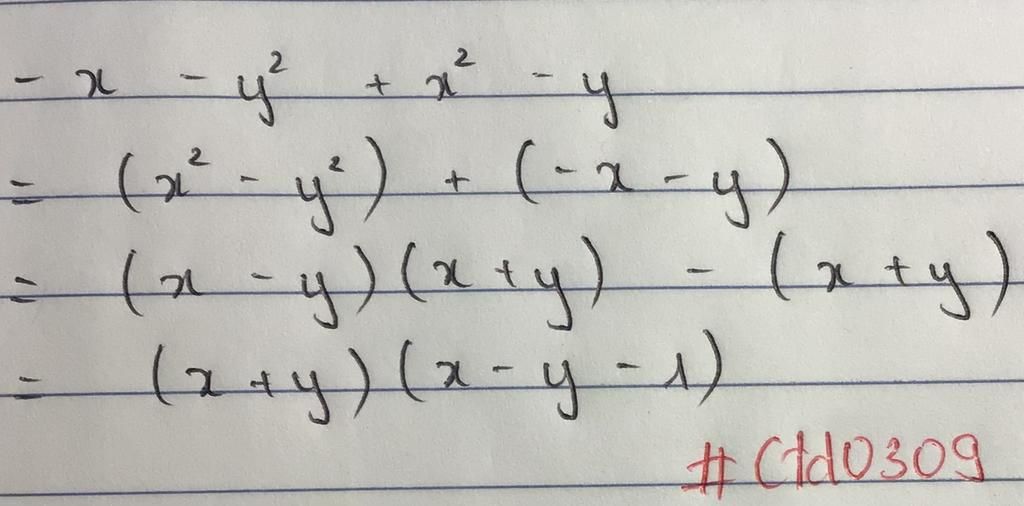 - x - y² + x² - y
= (x² - y²) + (-x - y)
= (x - y)(x + y) - (x + y)
= (x + y)(x - y - 1)
#Ctd0309